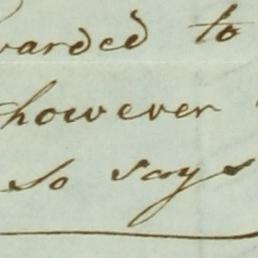 warded to
however
so says